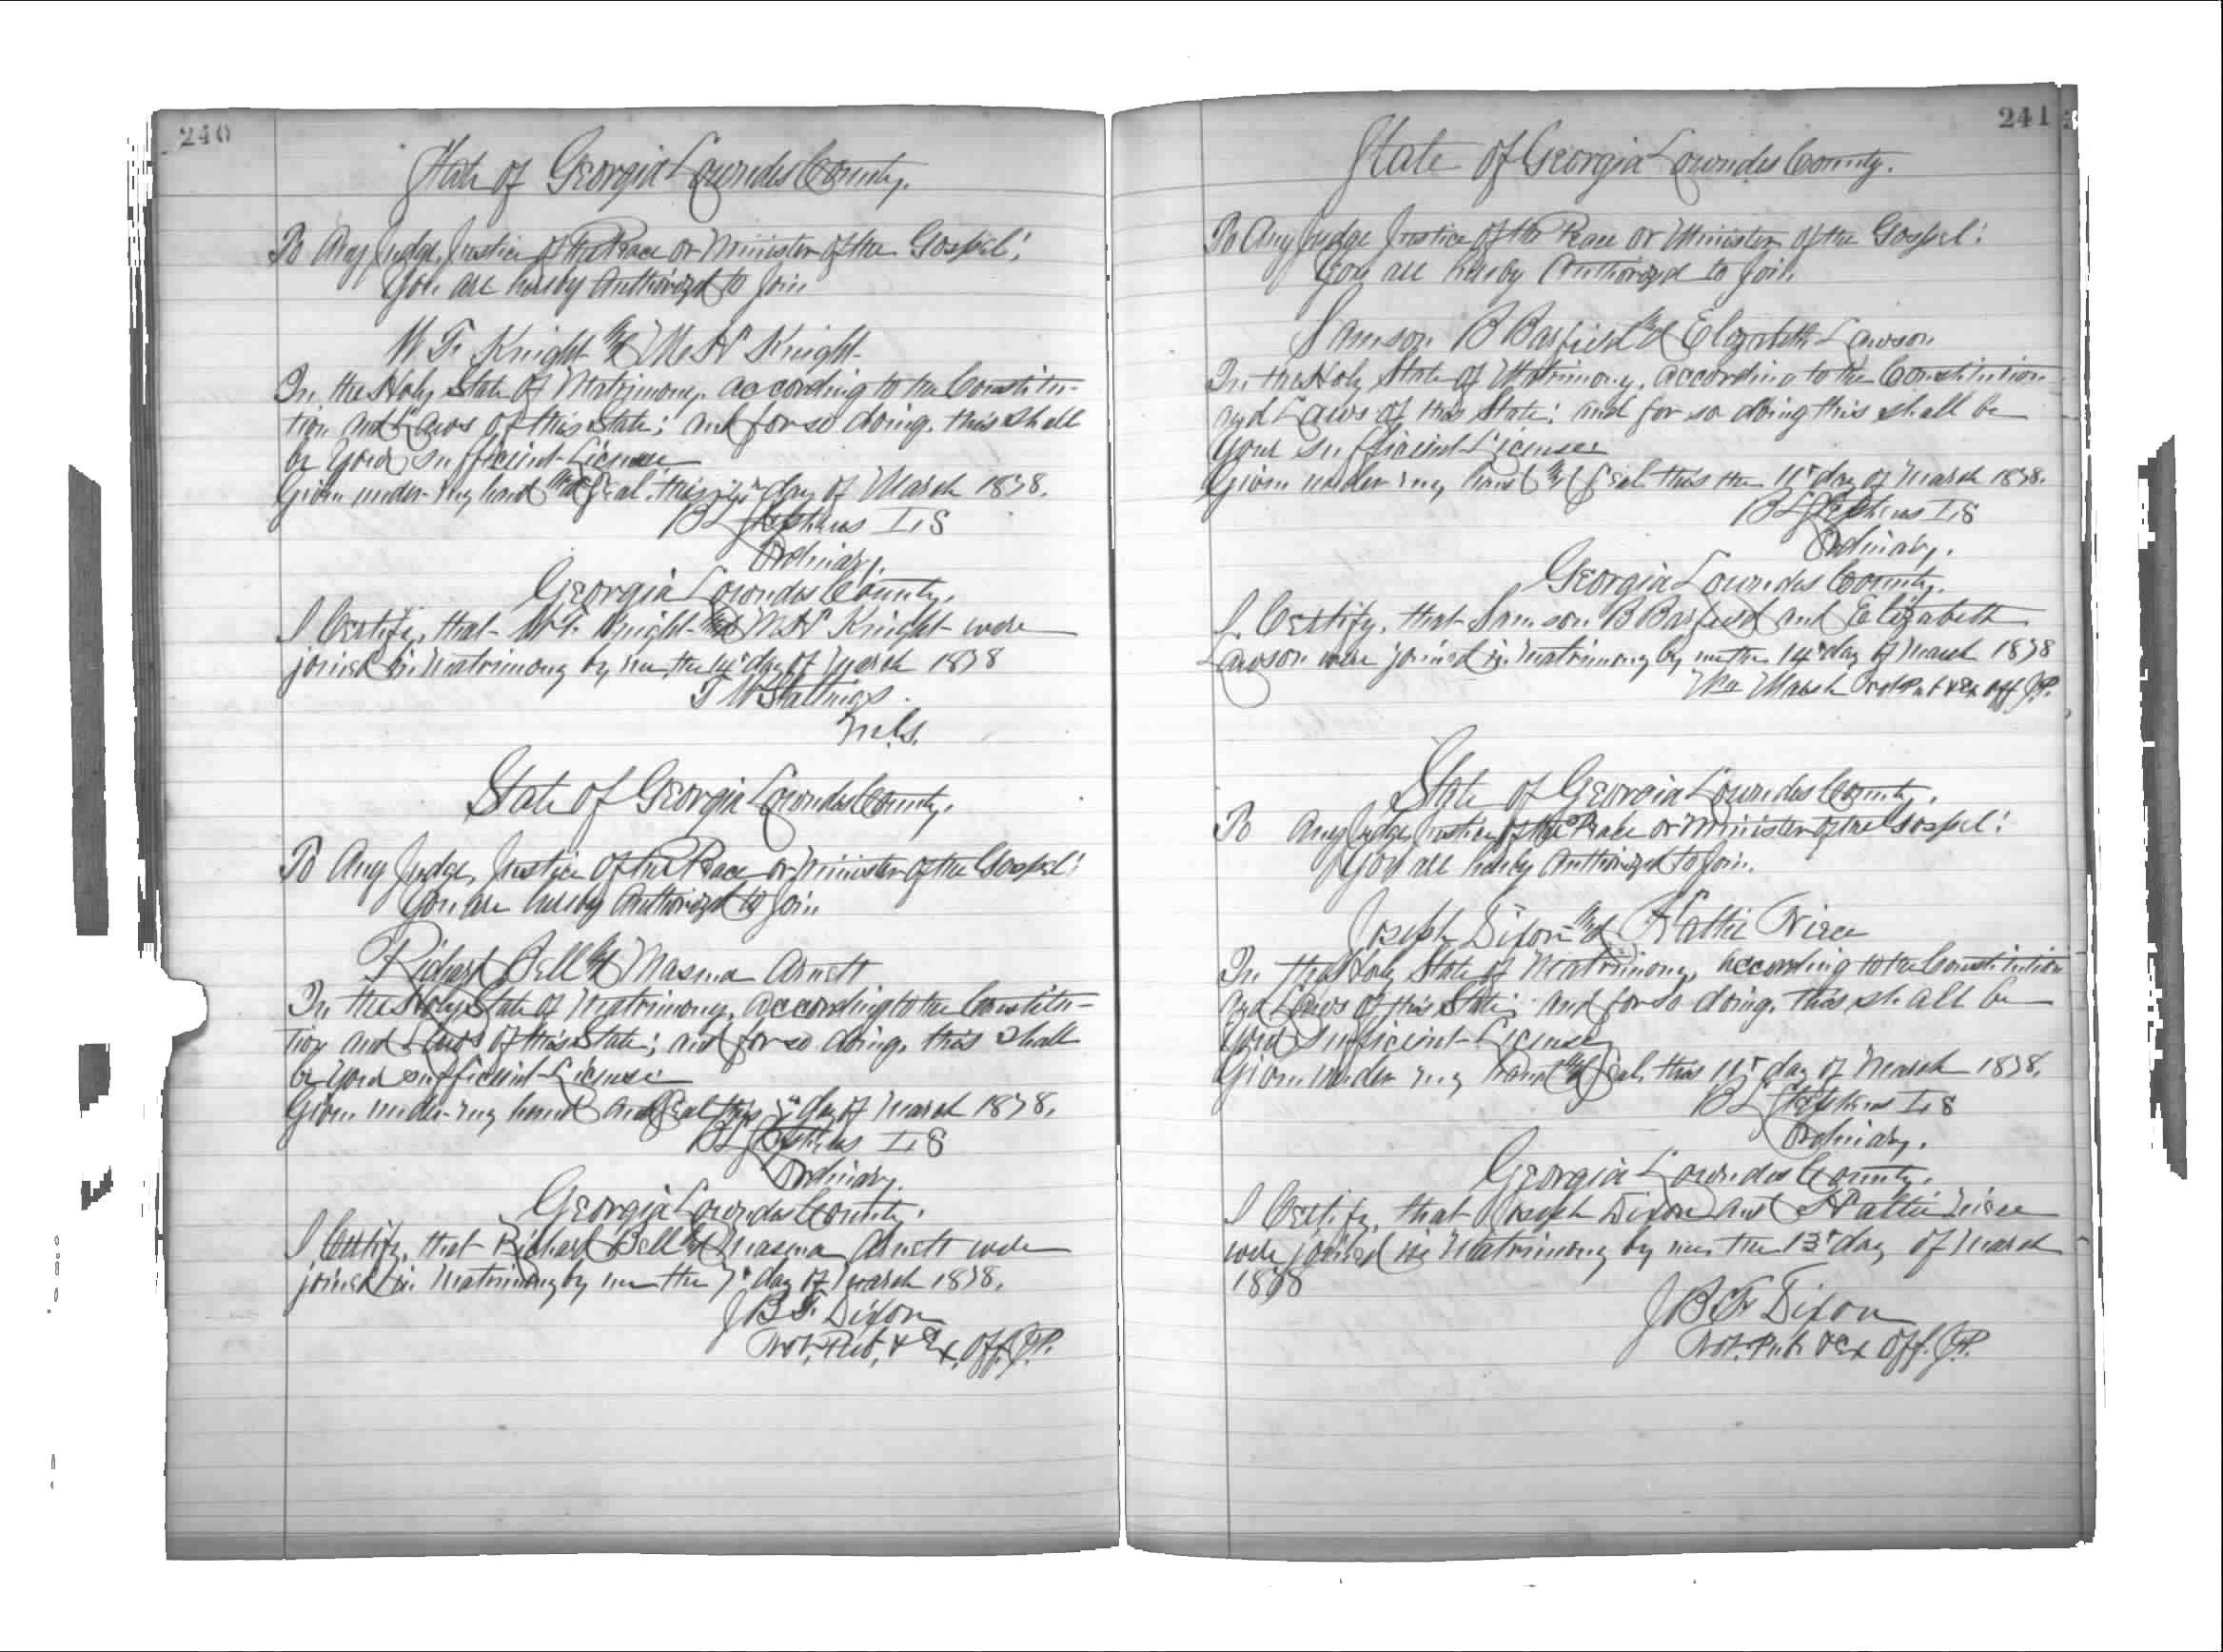 240
State of Georgia Lowndes County.
To Any Judge, Justice of the Peace or Minister of the Gospel:
You are hereby Authorized to Join
W. F. Knight and M. N. Knight
In the Holy State of Matrimony, according to the Constitu-
tion and Laws of this State; and for so doing, this shall
be Your sufficient License
Given under my hand and Seal, this day of March 1878.
B L Stephens L.S
Ordinary.
Georgia Lowndes County.
I Certify, that Knight and M N Knight were
joined in Matrimony by me the 14" day of March 1878
T W Stallings.
State of Georgia Lowndes County.
To Any Judge, Justice of the Peace or Minister of the Gospel:
You are hereby Authorized to Join
Richard Bell and Masina Arnett
In the Holy State of Matrimony, according to the Constitu-
tion and Laws of this State; and for so doing, this shall
be Your sufficient License
Given under my hand and Seal this day of March 1878.
B L Stephens L.S
Ordinary.
Georgia Lowndes County.
I Certify, that Richard Bell and Masina Arnett were
joined in Matrimony by me the 7" day of March 1878.
J B F. Dixon
Not. Pub. & Ex. Off. J.P.
241
State of Georgia Lowndes County.
To Any Judge Justice of the Peace or Minister of the Gospel:
You are hereby Authorized to Join
Samson B Barfield and Elizabeth Lawson
In the Holy State of Matrimony, according to the Constitution
and Laws of this State; and for so doing this shall be
Your sufficient License
Given under my hand and Seal this the 11" day of March 1878.
B L Stephens L.S
Ordinary.
Georgia Lowndes County.
I Certify, that Samson B Barfield and Elizabeth
Lawson were joined in Matrimony by me the 14" day of March 1878
Wm Marsh Not Pub & Ex Off. J.P.
State of Georgia Lowndes County.
To Any Judge Justice of the Peace or Minister of the Gospel:
You are hereby Authorized to Join.
Joseph Dixon and Hattie
In the Holy State of Matrimony, according to the Constitution
and Laws of this State; and for so doing, this shall be
Your Sufficient License
Given under my hand and Seal, this 11" day of March 1878.
B L Stephens L.S
Ordinary.
Georgia Lowndes County.
I Certify, that Joseph Dixon and Hattie
were joined in Matrimony by me the 13" day of March
1878
J B F Dixon
Not. Pub & Ex Off. J.P.